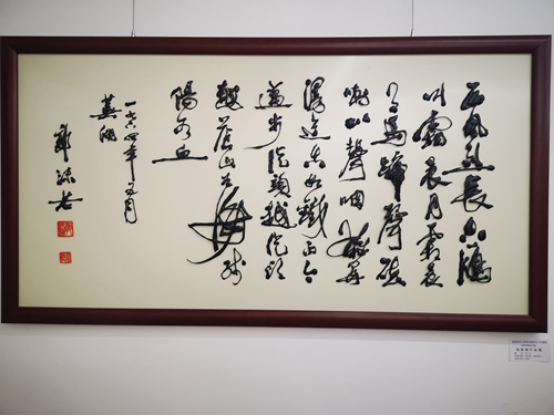 西风烈长空雁
叫霜晨月霜晨
月马蹄声碎
喇叭声咽雄关
漫道真如铁而今
迈步从头越从头
越苍山如海残
阳如血
一九六四年五月
芜湖
郭沫若